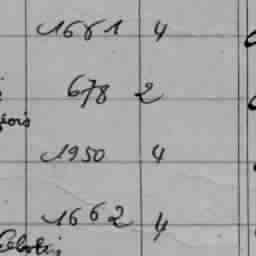 1661 4
678 2
geois
1950 4
1662 4